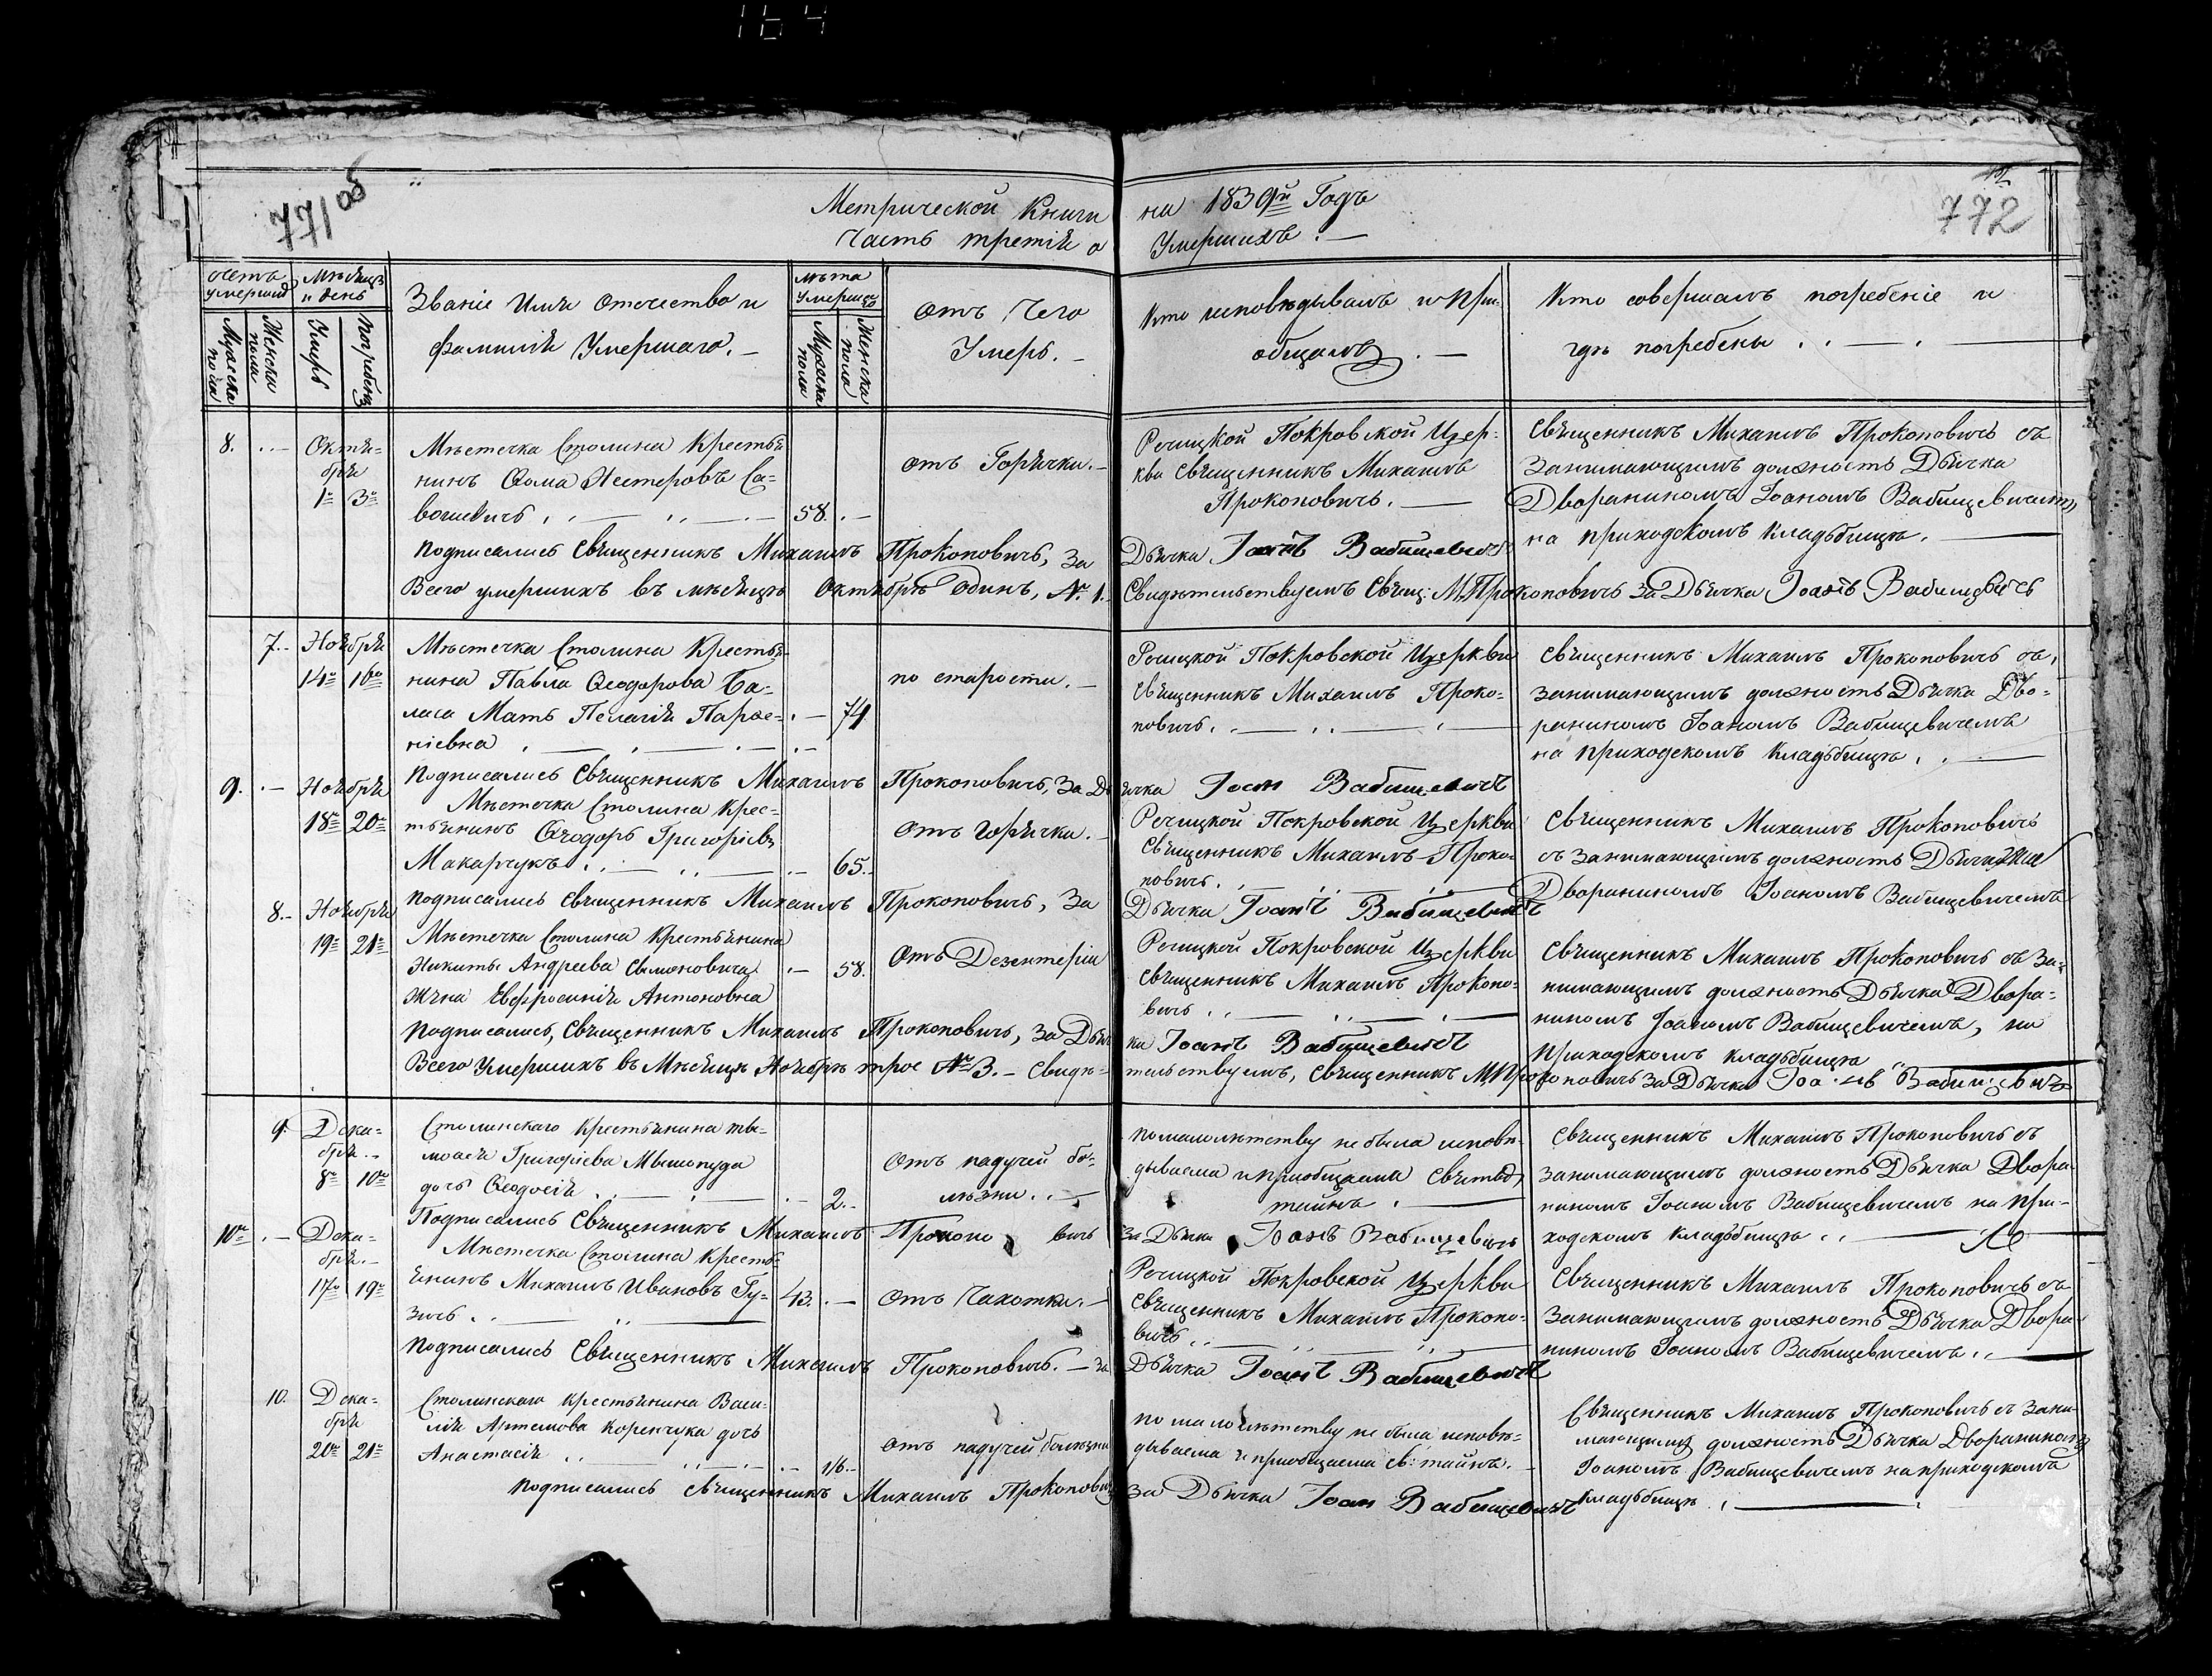 164
771об
Метрической Книги на 1839й Годъ
Часть третія о Умершихъ. —
772
счетъ умершихъ
Мѣсяцъ и день
Званіе Имя Отечество и
фамилія Умершаго. —
лѣта Умершихъ
Отъ Чего
Умеръ. —
Кто исповѣдывалъ и При-
общалъ. —
Кто совершалъ погребеніе и
гдѣ погребены
Мужеска пола
Женска пола
Умеръ
Погребенъ
Мужеска пола
Женска пола
8.
Октя-
бря
1го 3го
Мѣстечка Столина Крестья
нинъ Ѳома Нестеровъ Са-
58.
отъ Горячки. —
Речицкой Покровской Цер-
кви Священникъ Михаилъ
Прокоповичъ. —
Священникъ Михаилъ Прокоповичъ съ
Занимающимъ должность Дьячка
Двораниномъ Іоаномъ Вабищевичемъ,
на приходскомъ кладбищѣ. —
Подписались Священникъ Михаилъ Прокоповичъ, За Дьячка Іоанъ Вабищевичъ
Всего умершихъ въ мѣсяцѣ Октябрѣ Одинъ, №. 1. Свидѣтельствуемъ Свящ: М. Прокоповичъ За Дьячка Іоанъ Вабищевичъ
7.
Ноября
14го 16го
Мѣстечка Столина Крестья-
нина Павла Ѳеодорова Ба-
ласа Мать Пелагія Парѳе-
ніевна
74
по старости. —
Речицкой Покровской Церкви
Священникъ Михаилъ Проко-
повичъ.
Священникъ Михаилъ Прокоповичъ съ
занимающимъ должность Дьячка Дво-
раниномъ Іоаномъ Вабищевичемъ
на приходскомъ кладбищѣ.
Подписались Священникъ Михаилъ Прокоповичъ, За Дьячка Іоан Вабищевичъ
9.
Ноября
18го 20го
Мѣстечка Столина Крес-
тьянинъ Ѳеодоръ Григоріевъ
Макарчукъ
65.
Отъ Горячки. —
Речицкой Покровской Церкви
Священникъ Михаилъ Проко-
повичъ.
Священникъ Михаилъ Прокоповичъ
съ занимающимъ должность Дьячка
Двораниномъ Іоаномъ Вабищевичемъ
Подписались Священникъ Михаилъ Прокоповичъ, За Дьячка Іоанъ Вабищевичъ
8.
Ноября
19го 21го
Мѣстечка Столина Крестьянина
Никиты Андреева Симоновича
Жена Евфросинія Антоновна
58.
Отъ Дезентеріи
Речицкой Покровской Церкви
Священникъ Михаилъ Прокопо-
вичъ
Священникъ Михаилъ Прокоповичъ съ За-
нимающимъ должность Дьячка Двора-
ниномъ Іоаномъ Вабищевичемъ, на
Приходскомъ кладбищѣ
Подписались, Священникъ Михаилъ Прокоповичъ, За Дьячка Іоанъ Вабищевичъ
Всего Умершихъ въ Мѣсяцѣ Ноябрѣ трое № 3. — Свидѣтельствуемъ, Священникъ М Прокоповичъ За Дьячка Іоанъ Вабищевичъ
9.
Дека-
бря
8го 10го
Столинскаго Крестьянина Ти-
моѳея Григоріева
дочь Ѳеодосія
2.
Отъ падучей бо-
лѣзни.
По малолѣтству не была исповѣ-
дываема и приобщаема Святыхъ
тайнъ.
Священникъ Михаилъ Прокоповичъ съ
занимающимъ должность Дьячка Двора-
ниномъ Іоаномъ Вабищевичемъ на При-
ходскомъ кладбищѣ
Подписались Священникъ Михаилъ Прокоповичъ За Дьячка Іоанъ Вабищевичъ
10го
Дека-
бря
17го 19го
Мѣстечка Столина Кресть-
янинъ Михаилъ Ивановъ Гу-
зичъ
43.
Отъ Чахотки. —
Речицкой Покровской Церкви
Священникъ Михаилъ Прокопо-
вичъ
Священникъ Михаилъ Прокоповичъ съ
Занимающимъ должность Дьячка Двора-
ниномъ Іоаномъ Вабищевичемъ.
Подписались Священникъ Михаилъ Прокоповичъ. — за Дьячка Іоанъ Вабищевичъ
10.
Дека-
бря
20го 21го
Столинскаго Крестьянина Васи-
лія Артемова Коренчука дочь
Анастасія
1/6.
Отъ падучей болѣзни
по малолѣтству не была исповѣ-
дываема и приобщаема Св: тайнъ. —
Священникъ Михаилъ Прокоповичъ съ Зани-
мающимъ должность Дьячка Двораниномъ
Іоаномъ Вабищевичемъ на приходскомъ
кладбищѣ
Подписались Священникъ Михаилъ Прокоповичъ За Дьячка Іоан Вабищевичъ